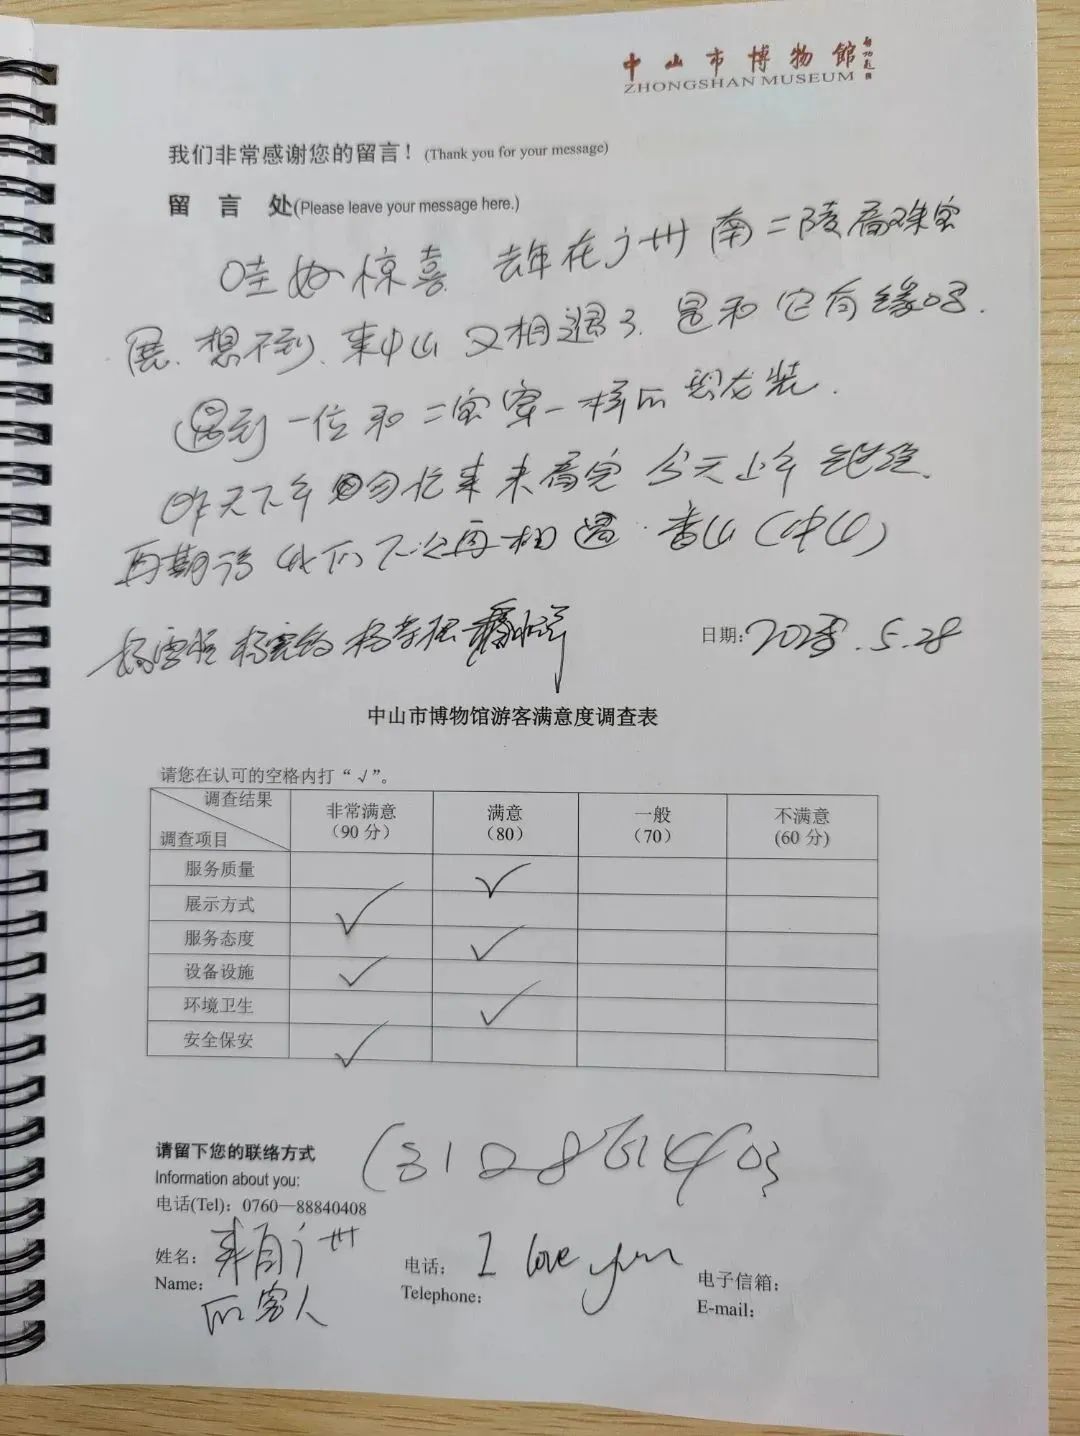 中山市博物館
ZHONGSHAN MUSEUM
我们非常感谢您的留言！(Thank you for your message)
留 言 处(Please leave your message here.)
哇好惊喜 去年在广州南二陵看珠宝
展、想不到、来中山又相遇了、是和它有缘吗.
遇到一位和二宝穿一样的恐龙装.
昨天下午匆忙来未看完 今天上午
再期待 我们下次再相遇. 香山(中山)
日期: .5.28
中山市博物馆游客满意度调查表
请您在认可的空格内打“√”。
调查结果 非常满意 满意 一般 不满意
调查项目 （90 分） （80） （70） (60 分)
服务质量 √
展示方式 √
服务态度 √
设备设施 √
环境卫生 √
安全保安 √
请留下您的联络方式
Information about you:
电话(Tel)：0760—88840408
姓名： 来自广州 电话： I love you 电子信箱：
Name: 的客人 Telephone: E-mail: